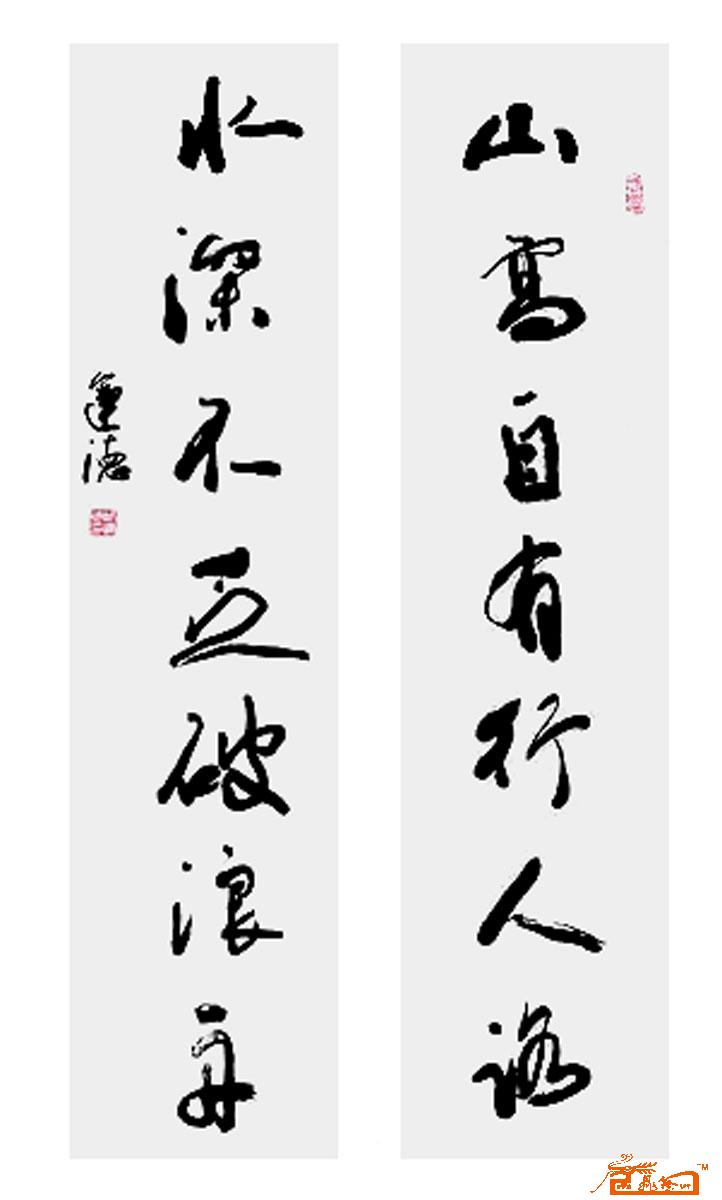 山高自有行人路
水深不乏破浪舟
德